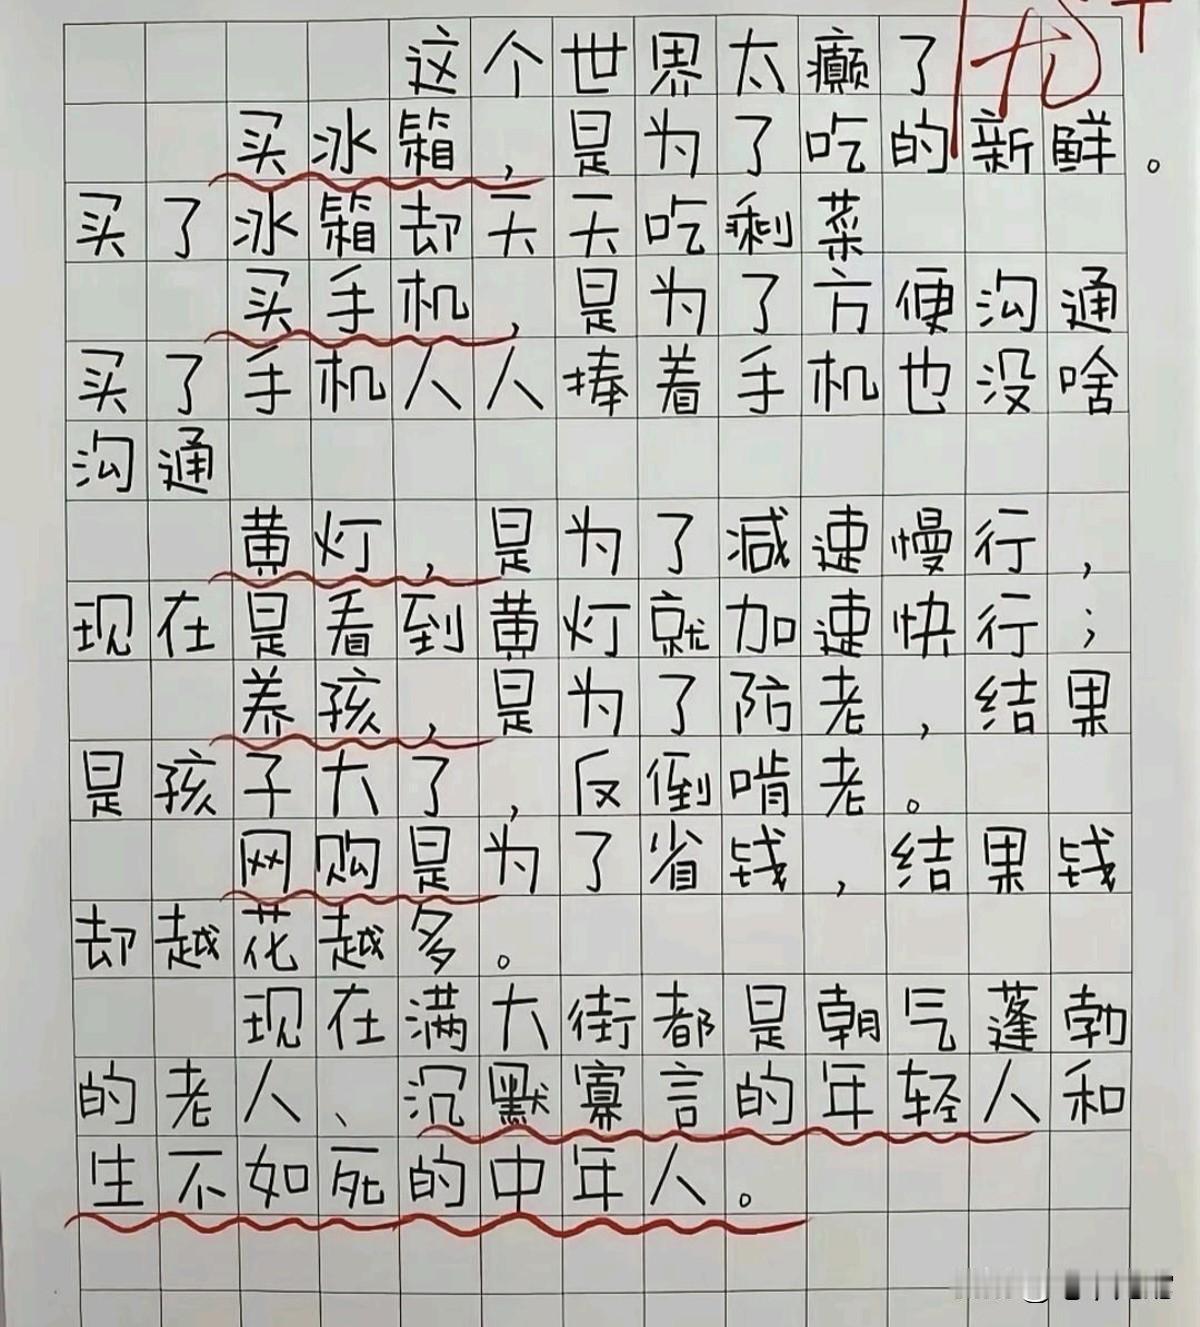 这个世界太癫了
优+
买冰箱,是为了吃的新鲜。
买了冰箱却天天吃剩菜
买手机,是为了方便沟通
买了手机人人捧着手机也没啥
沟通
黄灯,是为了减速慢行,
现在是看到黄灯就加速快行;
养孩,是为了防老,结果
是孩子大了,反倒啃老。
网购是为了省钱,结果钱
却越花越多。
现在满大街都是朝气蓬勃
的老人、沉默寡言的年轻人和
生不如死的中年人。